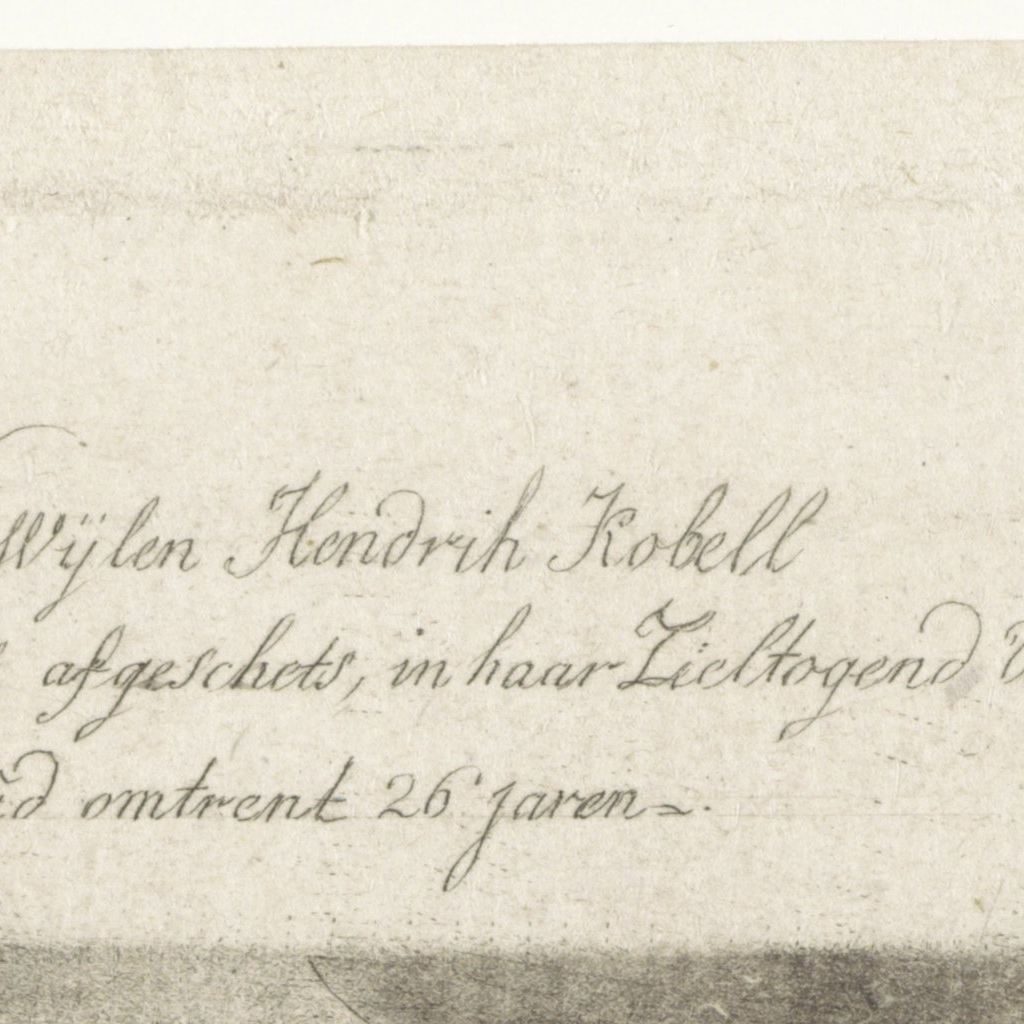 Wÿlen Hendrik Kobell
afgeschets, in haar Zieltogend
omtrent 26 jaren =.